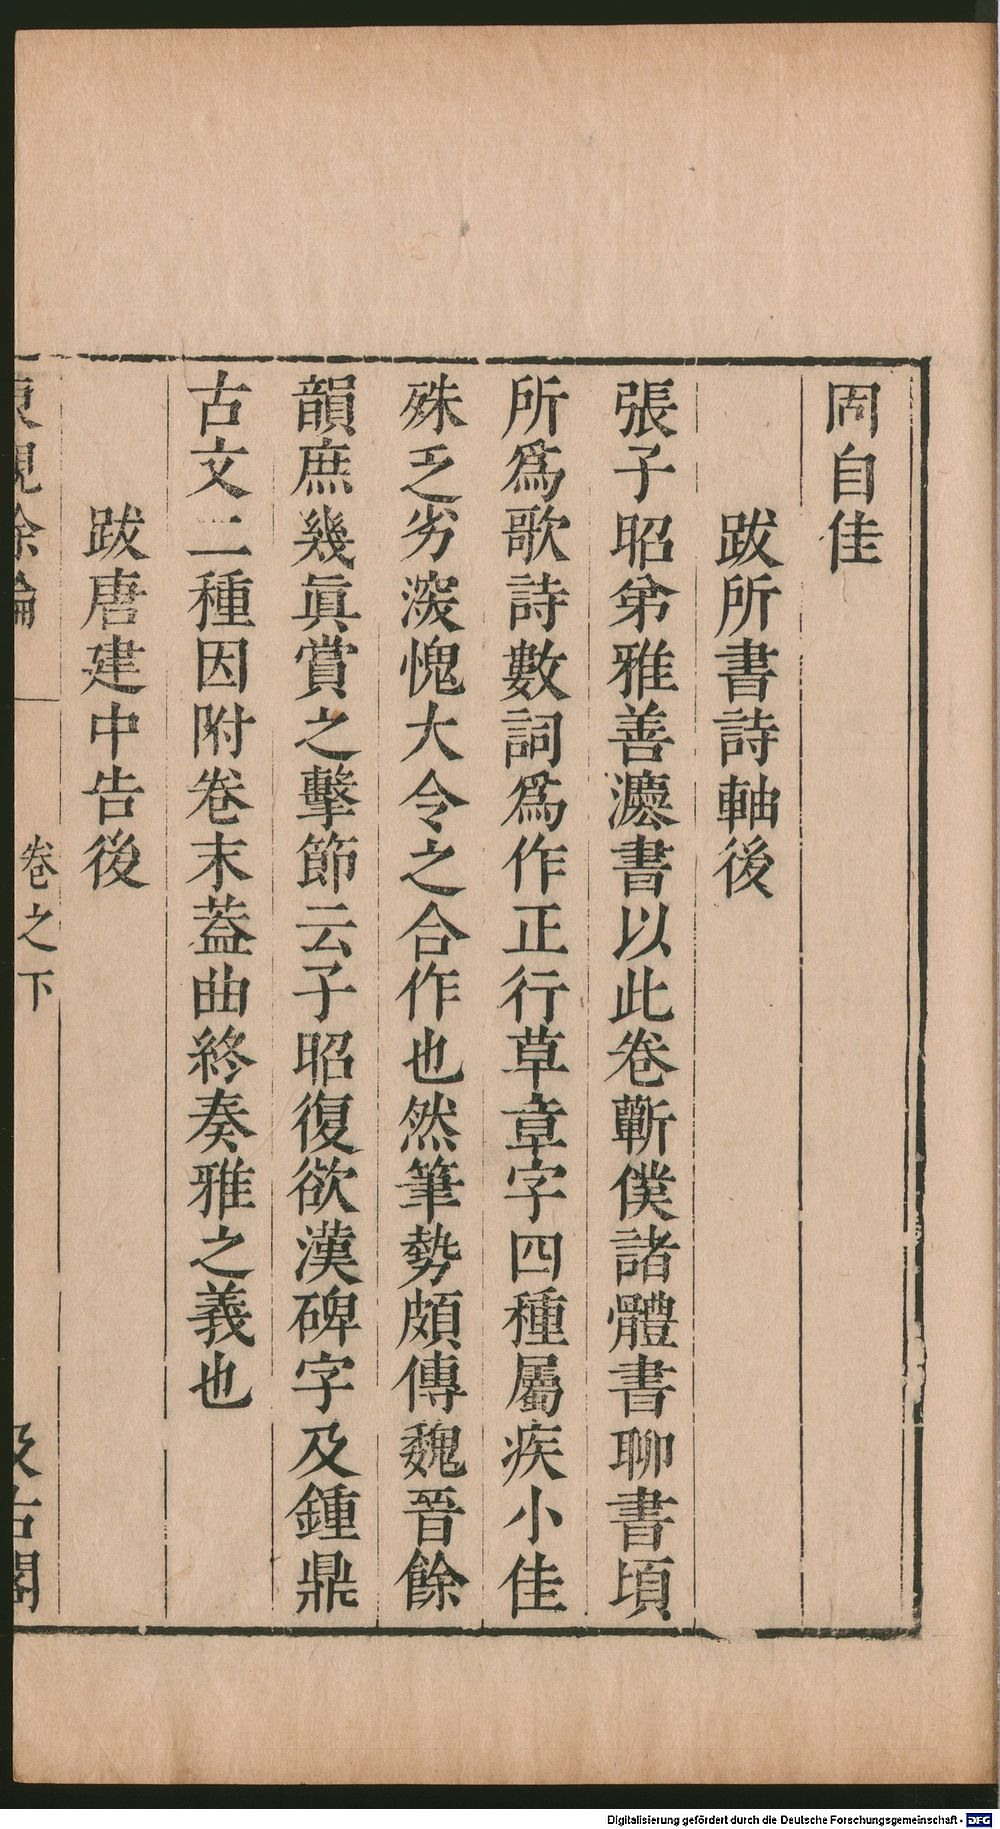 罔自佳
跋所書詩軸後
張子昭弟雅善灋書以此卷蘄僕諸體書聊書頃
所爲歌詩數詞爲作正行草章字四種屬疾小佳
殊乏劣深愧大令之合作也然筆勢頗傳魏晉餘
韻庶幾眞賞之擊節云子昭復欲漢碑字及鍾鼎
古文二種因附卷末葢曲終奏雅之義也
跋唐建中告後
東觀餘論 卷之下 汲古閣
Digitalisierung gefördert durch die Deutsche Forschungsgemeinschaft - DFG